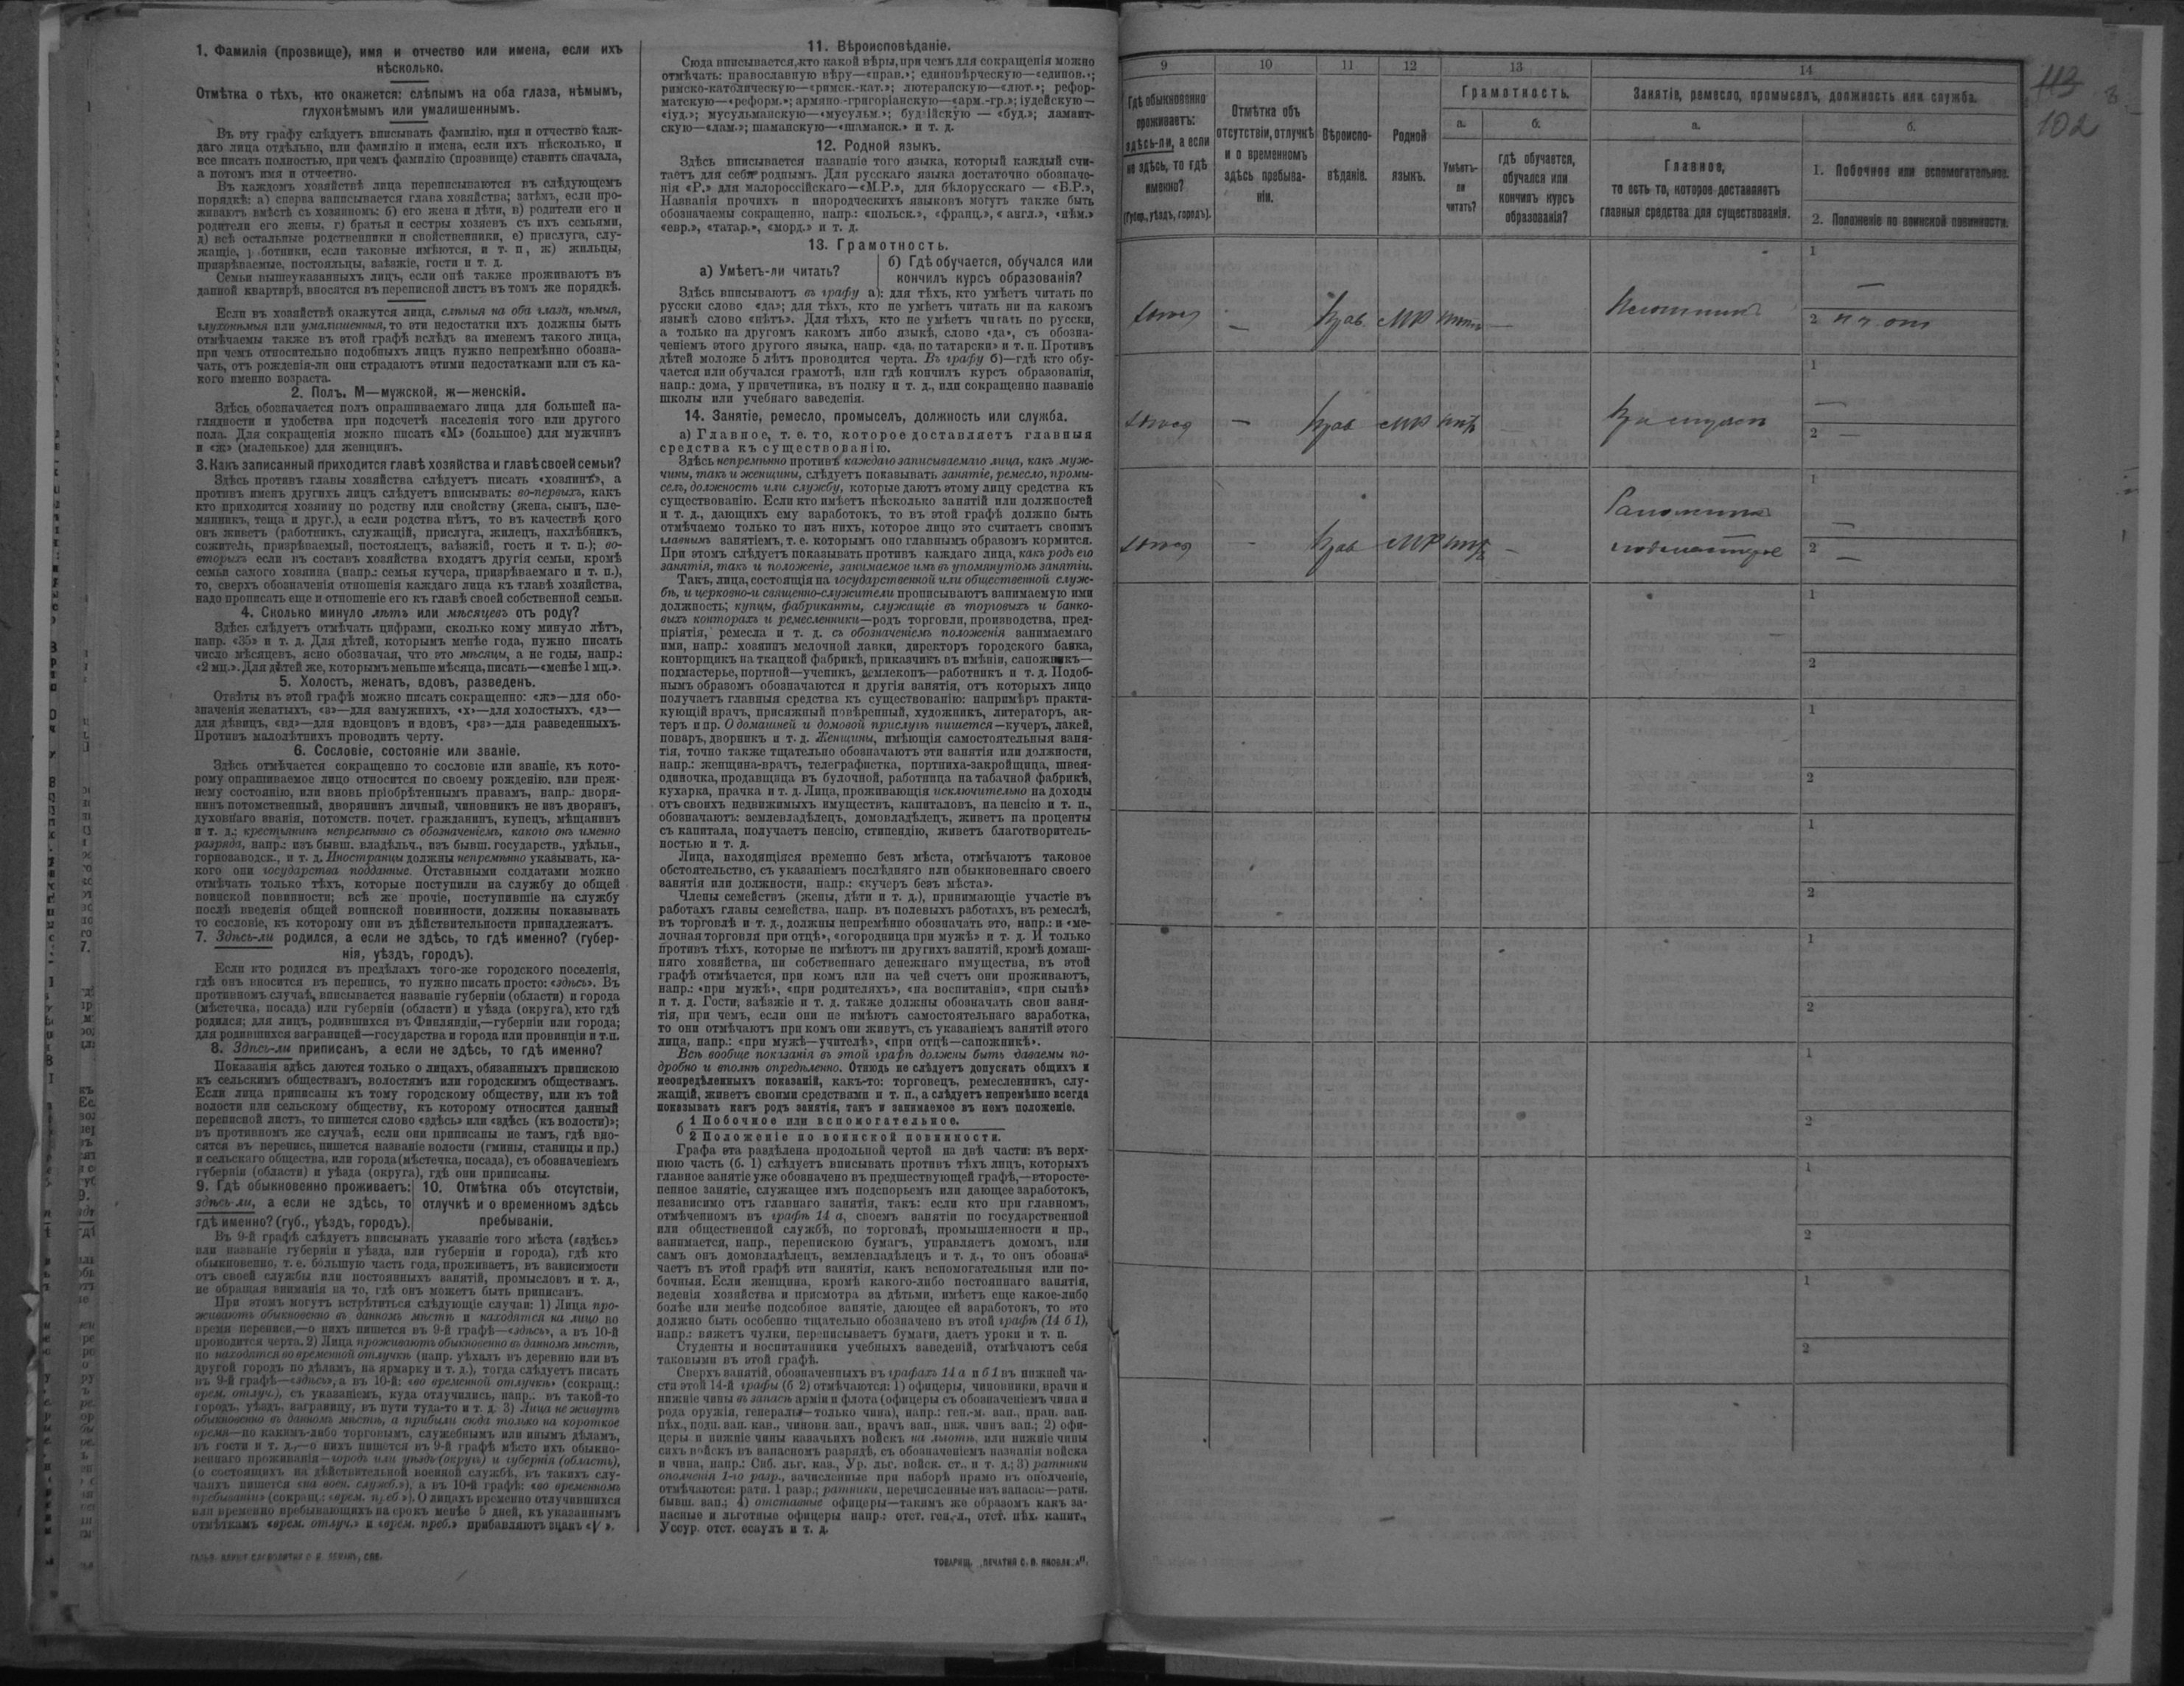 1. Фамилія (прозвище), имя и отчество или имена, если ихъ
нѣсколько.
Отмѣтка о тѣхъ, кто окажется: слѣпымъ на оба глаза, нѣмымъ,
глухонѣмымъ или умалишеннымъ.
Въ эту графу слѣдуетъ вписывать фамилію, имя и отчество каж-
даго лица отдѣльно, или фамилію и имена, если ихъ нѣсколько, и
все писать полностью, при чемъ фамилію (прозвище) ставить сначала,
а потомъ имя и отчество.
Въ каждомъ хозяйствѣ лица переписываются въ слѣдующемъ
порядкѣ: а) сперва записывается глава хозяйства; затѣмъ, если про-
живаютъ вмѣстѣ съ хозяиномъ: б) его жена и дѣти, в) родители его и
родители его жены, г) братья и сестры хозяевъ съ ихъ семьями,
д) всѣ остальные родственники и свойственники, е) прислуга, слу-
жащіе, работники, если таковые имѣются, и т. п, ж) жильцы,
призрѣваемые, постояльцы, заѣзжіе, гости и т. д.
Семьи вышеуказанныхъ лицъ, если онѣ также проживаютъ въ
данной квартирѣ, вносятся въ переписной листъ въ томъ же порядкѣ.
Если въ хозяйствѣ окажутся лица, слѣпыя на оба глаза, нѣмыя,
глухонѣмыя или умалишенныя, то эти недостатки ихъ должны быть
отмѣчаемы также въ этой графѣ вслѣдъ за именемъ такого лица,
при чемъ относительно подобныхъ лицъ нужно непремѣнно обозна-
чать, отъ рожденія-ли они страдаютъ этими недостатками или съ ка-
кого именно возраста.
2. Полъ. М—мужской, ж—женскій.
Здѣсь обозначается полъ опрашиваемаго лица для большей на-
глядности и удобства при подсчетѣ населенія того или другого
пола. Для сокращенія можно писать «М» (большое) для мужчинъ
и «ж» (маленькое) для женщинъ.
3. Какъ записанный приходится главѣ хозяйства и главѣ своей семьи?
Здѣсь противъ главы хозяйства слѣдуетъ писать «хозяинъ», а
противъ именъ другихъ лицъ слѣдуетъ вписывать: во-первыхъ, какъ
кто приходится хозяину по родству или свойству (жена, сынъ, пле-
мянникъ, теща и друг.), а если родства нѣтъ, то въ качествѣ кого
онъ живетъ (работникъ, служащій, прислуга, жилецъ, нахлѣбникъ,
сожитель, призрѣваемый, постоялецъ, заѣзжій, гость и т. п.); во-
вторыхъ если въ составъ хозяйства входятъ другія семьи, кромѣ
семьи самого хозяина (напр.: семья кучера, призрѣваемаго и т. п.),
то, сверхъ обозначенія отношенія каждаго лица къ главѣ хозяйства,
надо прописать еще и отношеніе его къ главѣ своей собственной семьи.
4. Сколько минуло лѣтъ или мѣсяцевъ отъ роду?
Здѣсь слѣдуетъ отмѣчать цифрами, сколько кому минуло лѣтъ,
напр. «35» и т. д. Для дѣтей, которымъ менѣе года, нужно писать
число мѣсяцевъ, ясно обозначая, что это мѣсяцы, а не годы, напр.:
«2 мц.». Для дѣтей же, которымъ меньше мѣсяца, писать—«менѣе 1 мц.».
5. Холостъ, женатъ, вдовъ, разведенъ.
Отвѣты въ этой графѣ можно писать сокращенно: «ж»—для обо-
значенія женатыхъ, «з»—для замужнихъ, «х»—для холостыхъ, «д»—
для дѣвицъ, «вд»—для вдовцовъ и вдовъ, «рз»—для разведенныхъ.
Противъ малолѣтнихъ проводить черту.
6. Сословіе, состояніе или званіе.
Здѣсь отмѣчается сокращенно то сословіе или званіе, къ кото-
рому опрашиваемое лицо относится по своему рожденію, или преж-
нему состоянію, или вновь пріобрѣтеннымъ правамъ, напр.: дворя-
нинъ потомственный, дворянинъ личный, чиновникъ не изъ дворянъ,
духовнаго званія, потомств. почет. гражданинъ, купецъ, мѣщанинъ
и т. д.; крестьянинъ непремѣнно съ обозначеніемъ, какого онъ именно
разряда, напр.: изъ бывш. владѣльч., изъ бывш. государств., удѣльн.,
горнозаводск., и т. д. Иностранцы должны непремѣнно указывать, ка-
кого они государства подданные. Отставными солдатами можно
отмѣчать только тѣхъ, которые поступили на службу до общей
воинской повинности; всѣ же прочіе, поступившіе на службу
послѣ введенія общей воинской повинности, должны показывать
то сословіе, къ которому они въ дѣйствительности принадлежатъ.
7. Здѣсь-ли родился, а если не здѣсь, то гдѣ именно? (губер-
нія, уѣздъ, городъ).
Если кто родился въ предѣлахъ того-же городского поселенія,
гдѣ онъ вносится въ перепись, то нужно писать просто: «здѣсь». Въ
противномъ случаѣ, вписывается названіе губерніи (области) и города
(мѣстечка, посада) или губерніи (области) и уѣзда (округа), кто гдѣ
родился; для лицъ, родившихся въ Финляндіи,—губерніи или города;
для родившихся заграницей—государства и города или провинціи и т.п.
8. Здѣсь-ли приписанъ, а если не здѣсь, то гдѣ именно?
Показанія здѣсь даются только о лицахъ, обязанныхъ припискою
къ сельскимъ обществамъ, волостямъ или городскимъ обществамъ.
Если лица приписаны къ тому городскому обществу, или къ той
волости или сельскому обществу, къ которому относится данный
переписной листъ, то пишется слово «здѣсь» или «здѣсь (къ волости)»;
въ противномъ же случаѣ, если они приписаны не тамъ, гдѣ вно-
сятся въ перепись, пишется названіе волости (гмины, станицы и пр.)
и сельскаго общества, или города (мѣстечка, посада), съ обозначеніемъ
губернія (области) и уѣзда (округа), гдѣ они приписаны.
9. Гдѣ обыкновенно проживаетъ:
здѣсь-ли, а если не здѣсь, то
гдѣ именно? (губ., уѣздъ, городъ).
10. Отмѣтка объ отсутствіи,
отлучкѣ и о временномъ здѣсь
пребываніи.
Въ 9-й графѣ слѣдуетъ вписывать указаніе того мѣста («здѣсь»
или названіе губерніи и уѣзда, или губерніи и города), гдѣ кто
обыкновенно, т. е. большую часть года, проживаетъ, въ зависимости
отъ своей службы или постоянныхъ занятій, промысловъ и т. д.,
не обращая вниманія на то, гдѣ онъ можетъ быть приписанъ.
При этомъ могутъ встрѣтиться слѣдующіе случаи: 1) Лица про-
живаютъ обыкновенно въ данномъ мѣстѣ и находятся на лицо во
время переписи,—о нихъ пишется въ 9-й графѣ—«здѣсь», а въ 10-й
проводится черта. 2) Лица проживаютъ обыкновенно въ данномъ мѣстѣ,
но находятся во временной отлучкѣ (напр. уѣхалъ въ деревню или въ
другой городъ по дѣламъ, на ярмарку и т. д.), тогда слѣдуетъ писать
въ 9-й графѣ—«здѣсь», а въ 10-й: «во временной отлучкѣ» (сокращ.:
врем. отлуч.), съ указаніемъ, куда отлучились, напр.: въ такой-то
городъ, уѣздъ, заграницу, въ пути туда-то и т. д. 3) Лица не живутъ
обыкновенно въ данномъ мѣстѣ, а прибыли сюда только на короткое
время—по какимъ-либо торговымъ, служебнымъ или инымъ дѣламъ,
въ гости и т. д.,—о нихъ пишется въ 9-й графѣ мѣсто ихъ обыкно-
веннаго проживанія—городъ или уѣздъ (округъ) и губернія (область),
(о состоящихъ на дѣйствительной военной службѣ, въ такихъ слу-
чаяхъ пишется «на воен. служб.»), а въ 10-й графѣ: «во временномъ
пребываніи» (сокращ.: «врем. преб»). О лицахъ временно отлучившихся
или временно пребывающихъ на срокъ менѣе 5 дней, къ указаннымъ
отмѣткамъ «врем. отлуч.» и «врем. преб.» прибавляютъ знакъ «V».
11. Вѣроисповѣданіе.
Сюда вписывается, кто какой вѣры, при чемъ для сокращенія можно
отмѣчать: православную вѣру—«прав.»; единовѣрческую—«единов.»;
римско-католическую—«римск.-кат.»; лютеранскую—«лют.»; рефор-
матскую—«реформ.»; армяно-григоріанскую—«арм.-гр.»; іудейскую—
«іуд.»; мусульманскую—«мусульм.»; буддійскую — «буд.»; ламаит-
скую—«лам.»; шаманскую—«шаманск.» и т. д.
12. Родной языкъ.
Здѣсь вписывается названіе того языка, который каждый счи-
таетъ для себя роднымъ. Для русскаго языка достаточно обозначе-
нія «Р.» для малороссійскаго—«М.Р.», для бѣлорусскаго — «Б.Р.»,
Названія прочихъ и инородческихъ языковъ могутъ также быть
обозначаемы сокращенно, напр: «польск.», «франц.», «англ.», «нѣм.»
«евр.», «татар.», «морд.» и т. д.
13. Грамотность.
а) Умѣетъ-ли читать?
б) Гдѣ обучается, обучался или
кончилъ курсъ образованія?
Здѣсь вписываютъ въ графу а): для тѣхъ, кто умѣетъ читать по
русски слово «да»; для тѣхъ, кто не умѣетъ читать ни на какомъ
языкѣ слово «нѣтъ». Для тѣхъ, кто не умѣетъ читать по русски,
а только на другомъ какомъ либо языкѣ, слово «да», съ обозна-
ченіемъ этого другого языка, напр. «да, по татарски» и т. п. Противъ
дѣтей моложе 5 лѣтъ проводится черта. Въ графу б)—гдѣ кто обу-
чается или обучался грамотѣ, или гдѣ кончилъ курсъ образованія,
напр.: дома, у причетника, въ полку и т. д., или сокращенно названіе
школы или учебнаго заведенія.
14. Занятіе, ремесло, промыселъ, должность или служба.
а) Главное, т. е. то, которое доставляетъ главныя
средства къ существованію.
Здѣсь непремѣнно противъ каждаго записываемаго лица, какъ муж-
чины, такъ и женщины, слѣдуетъ показывать занятіе, ремесло, промы-
селъ, должность или службу, которые даютъ этому лицу средства къ
существованію. Если кто имѣетъ нѣсколько занятій или должностей
и т. д., дающихъ ему заработокъ, то въ этой графѣ должно быть
отмѣчаемо только то изъ нихъ, которое лицо это считаетъ своимъ
главнымъ занятіемъ, т. е. которымъ оно главнымъ образомъ кормится.
При этомъ слѣдуетъ показывать противъ каждаго лица, какъ родъ его
занятія, такъ и положеніе, занимаемое имъ въ упомянутомъ занятіи.
Такъ, лица, состоящія на государственной или общественной служ-
бѣ, и церковно-и священно-служители прописываютъ занимаемую ими
должность; купцы, фабриканты, служащіе въ торговыхъ и банко-
выхъ конторахъ и ремесленники—родъ торговли, производства, пред-
пріятія, ремесла и т. д. съ обозначеніемъ положенія занимаемаго
ими, напр.: хозяинъ мелочной лавки, директоръ городского банка,
конторщикъ на ткацкой фабрикѣ, приказчикъ въ имѣніи, сапожникъ—
подмастерье, портной—ученикъ, землекопъ—работникъ и т. д. Подоб-
нымъ образомъ обозначаются и другія занятія, отъ которыхъ лицо
получаетъ главныя средства къ существованію: напримѣръ практи-
кующій врачъ, присяжный повѣренный, художникъ, литераторъ, ак-
теръ и пр. О домашней и домовой прислугѣ пишется—кучеръ, лакей,
поваръ, дворникъ и т. д. Женщины, имѣющія самостоятельныя заня-
тія, точно также тщательно обозначаютъ эти занятія или должности,
напр.: женщина-врачъ, телеграфистка, портниха-закройщица, швея-
одиночка, продавщица въ булочной, работница на табачной фабрикѣ,
кухарка, прачка и т. д. Лица, проживающія исключительно на доходы
отъ своихъ недвижимыхъ имуществъ, капиталовъ, на пенсію и т. п.,
обозначаютъ: землевладѣлецъ, домовладѣлецъ, живетъ на проценты
съ капитала, получаетъ пенсію, стипендію, живетъ благотворитель-
ностью и т. д.
Лица, находящіяся временно безъ мѣста, отмѣчаютъ таковое
обстоятельство, съ указаніемъ послѣдняго или обыкновеннаго своего
занятія или должности, напр.: «кучеръ безъ мѣста».
Члены семействъ (жены, дѣти и т. д.), принимающіе участіе въ
работахъ главы семейства, напр. въ полевыхъ работахъ, въ ремеслѣ,
въ торговлѣ и т. д., должны непремѣнно обозначать это, напр.: и «ме-
лочная торговля при отцѣ», «огородница при мужѣ» и т. д. И только
противъ тѣхъ, которые не имѣютъ ни другихъ занятій, кромѣ домаш-
няго хозяйства, ни собственнаго денежнаго имущества, въ этой
графѣ отмѣчается, при комъ или на чей счетъ они проживаютъ,
напр.: «при мужѣ», «при родителяхъ», «на воспитаніи», «при сынѣ»
и т. д. Гости, заѣзжіе и т. д. также должны обозначать свои заня-
тія, при чемъ, если они не имѣютъ самостоятельнаго заработка,
то они отмѣчаютъ при комъ они живутъ, съ указаніемъ занятій этого
лица, напр.: «при мужѣ—учителѣ», «при отцѣ—сапожникѣ».
Всѣ вообще показанія въ этой графѣ должны быть даваемы по-
дробно и вполнѣ опредѣленно. Отнюдь не слѣдуетъ допускать общихъ и
неопредѣленныхъ показаній, какъ-то: торговецъ, ремесленникъ, слу-
жащій, живетъ своими средствами и т. п., а слѣдуетъ непремѣнно всегда
показывать какъ родъ занятія, такъ и занимаемое въ немъ положеніе.
б 1 Побочное или вспомогательное.
2 Положеніе по воинской повинности.
Графа эта раздѣлена продольной чертой на двѣ части: въ верх-
нюю часть (б. 1) слѣдуетъ вписывать противъ тѣхъ лицъ, которыхъ
главное занятіе уже обозначено въ предшествующей графѣ,—второсте-
пенное занятіе, служащее имъ подспорьемъ или дающее заработокъ,
независимо отъ главнаго занятія, такъ: если кто при главномъ,
отмѣченномъ въ графѣ 14 а, своемъ занятіи по государственной
или общественной службѣ, по торговлѣ, промышленности и пр.,
занимается, напр., перепискою бумагъ, управляетъ домомъ, или
самъ онъ домовладѣлецъ, землевладѣлецъ и т. д., то онъ обозна-
чаетъ въ этой графѣ эти занятія, какъ вспомогательныя или по-
бочныя. Если женщина, кромѣ какого-либо постояннаго занятія,
веденія хозяйства и присмотра за дѣтьми, имѣетъ еще какое-либо
болѣе или менѣе подсобное занятіе, дающее ей заработокъ, то это
должно быть особенно тщательно обозначено въ этой графѣ (14 б 1),
напр.: вяжетъ чулки, переписываетъ бумаги, даетъ уроки и т. п.
Студенты и воспитанники учебныхъ заведеній, отмѣчаютъ себя
таковыми въ этой графѣ.
Сверхъ занятій, обозначенныхъ въ графахъ 14 а и б 1 въ нижней ча-
сти этой 14-й графы (б 2) отмѣчаются: 1) офицеры, чиновники, врачи и
нижніе чины въ запасѣ арміи и флота (офицеры съ обозначеніемъ чина и
рода оружія, генералы—только чина), напр.: ген.-м. зап., прап. зап.
пѣх., подп. зап. кав., чиновн. зап., врачъ зап., ниж. чинъ зап.; 2) офи-
церы и нижніе чины казачьихъ войскъ на льготѣ, или нижніе чины
сихъ войскъ въ запасномъ разрядѣ, съ обозначеніемъ названія войска
и чина, напр.: Сиб. льг. каз., Ур. льг. войск. ст., и т. д.; 3) ратники
ополченія 1-го разр., зачисленные при наборѣ прямо въ ополченіе,
отмѣчаются: ратн. 1 разр.; ратники, перечисленные изъ запаса:—ратн.
бывш. зап.; 4) отставные офицеры—такимъ же образомъ какъ за-
пасные и льготные офицеры напр.: отст. ген.-л., отст. пѣх. капит.,
Уссур. отст. есаулъ и т. д.
9
10
11
12
13
14
113
102
Гдѣ обыкновенно
проживаетъ:
здѣсь-ли, а если
не здѣсь, то гдѣ
именно?
(Губер., уѣздъ, городъ).
Отмѣтка объ
отсутствіи, отлучкѣ
и о временномъ
здѣсь пребыва-
ніи.
Вѣроиспо-
вѣданіе.
Родной
языкъ.
Грамотность.
а.
Умѣетъ-
ли
читать?
б.
гдѣ обучается,
обучался или
кончилъ курсъ
образованія?
Занятіе, ремесло, промыселъ, должность или служба.
а.
Главное,
то есть то, которое доставляетъ
главныя средства для существованія.
б.
1. Побочное или вспомогательное.
2. Положеніе по воинской повинности.
1
—
Прав МР
2
1
—
Прав МР
2 —
1
Сапожникъ
—
Прав МР подмастерье
2 —
1
2
1
2
1
2
1
2
1
2
1
2
1
2